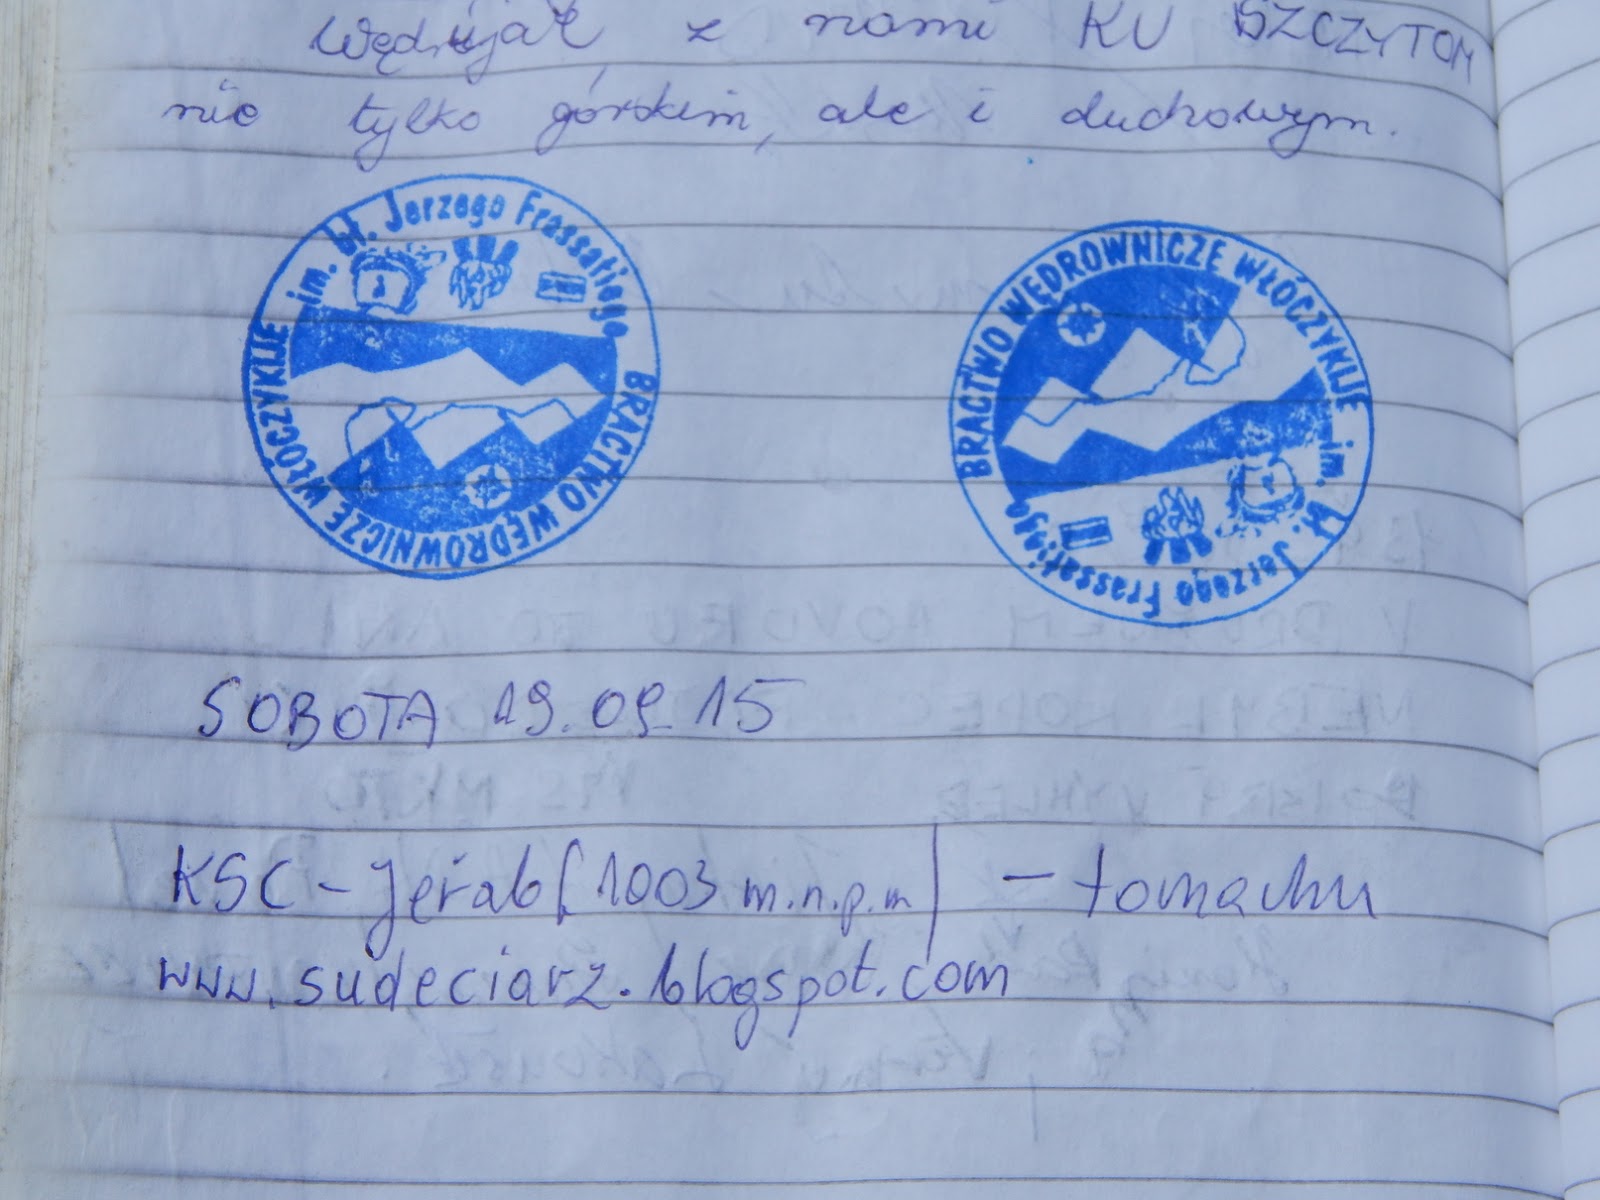 Wędrujak z nami KU SZCZYTOM
nie tylko górskim, ale i duchowym.
BRACTWO WĘDROWNICZE WŁÓCZYKIJE im. bł. Jerzego Frassatiego
BRACTWO WĘDROWNICZE WŁÓCZYKIJE im. bł. Jerzego Frassatiego
SOBOTA 19.09.15
KSC – Jeřab (1003 m.n.p.m) – tomachu
www.sudeciarz.blogspot.com